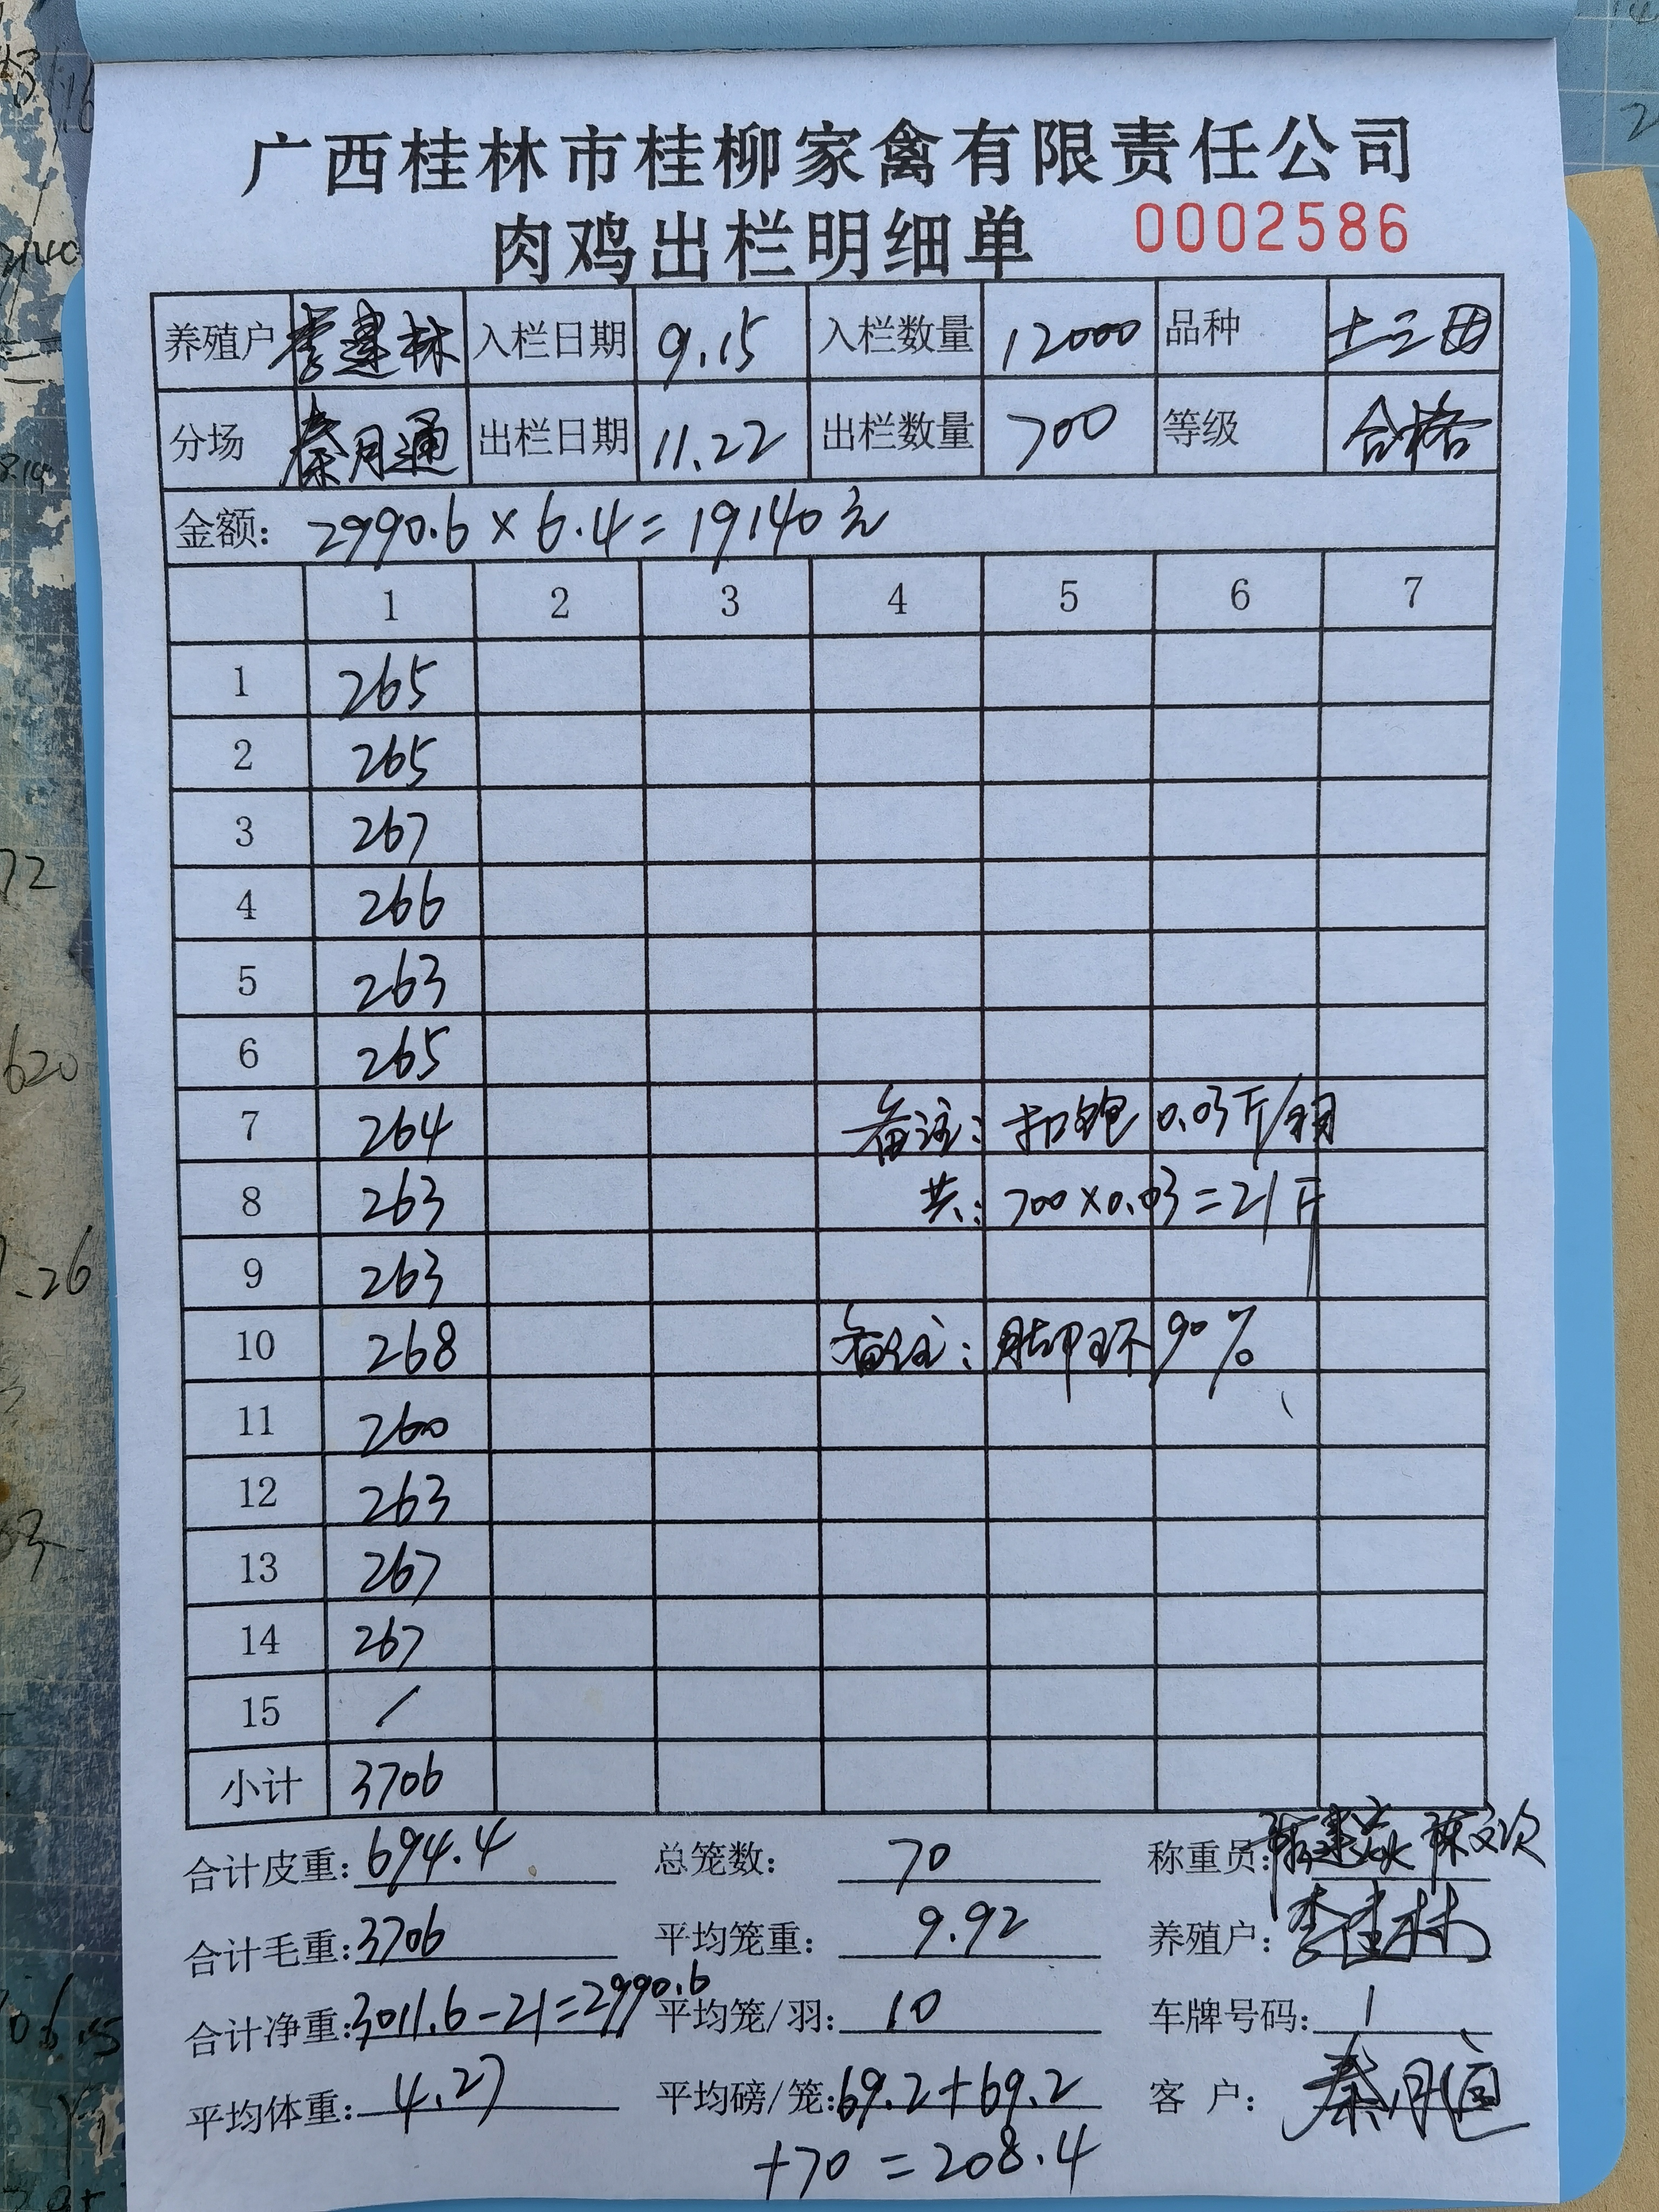 广西桂林市桂柳家禽有限责任公司
肉鸡出栏明细单 0002586
养殖户 李建林 入栏日期 9.15 入栏数量 12000 品种 土三田
分场 秦月通 出栏日期 11.22 出栏数量 700 等级 合格
金额: 2990.6 × 6.4 = 19140元
1 2 3 4 5 6 7
1 265
2 265
3 267
4 266
5 263
6 265
7 264 备注: 扣饱 0.03斤/羽
8 263 共: 700×0.03=21斤
9 263
10 268 备注: 脚环 90%
11 260
12 263
13 267
14 267
15 /
小计 3706
合计皮重: 694.4 总笼数: 70 称重员:
合计毛重: 3706 平均笼重: 9.92 养殖户: 李建林
合计净重: 3011.6-21=2990.6 平均笼/羽: 10 车牌号码: 1
平均体重: 4.27 平均磅/笼: 69.2+69.2 客 户: 秦月通
+70 = 208.4